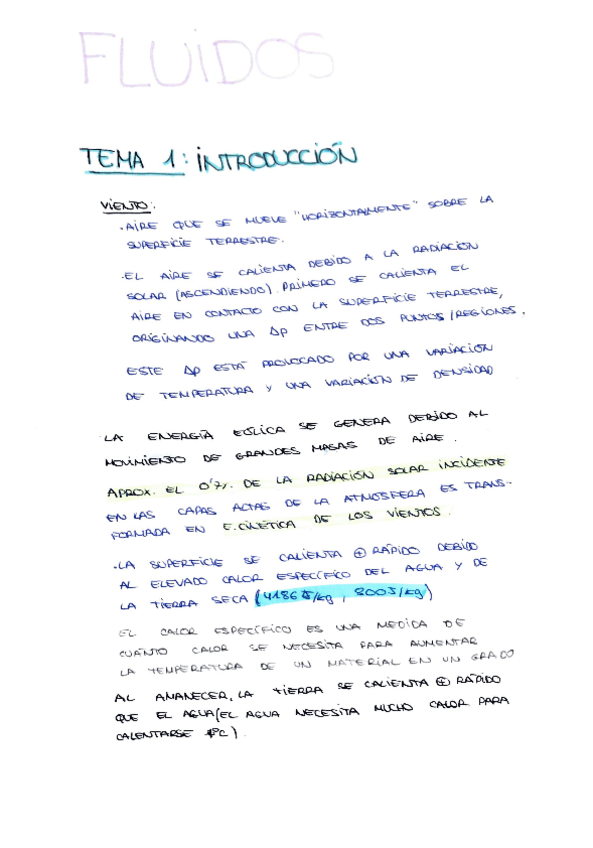 FLUIDOS
TEMA 1: INTRODUCCIÓN
VIENTO:
·AIRE QUE SE MUEVE "HORIZONTALMENTE" SOBRE LA
SUPERFICIE TERRESTRE.
·EL AIRE SE CALIENTA DEBIDO A LA RADIACIÓN
SOLAR (ASCENDIENDO). PRIMERO SE CALIENTA EL
AIRE EN CONTACTO CON LA SUPERFICIE TERRESTRE,
ORIGINANDO UNA Δp ENTRE DOS PUNTOS/REGIONES.
ESTE Δp ESTÁ PROVOCADO POR UNA VARIACIÓN
DE TEMPERATURA Y UNA VARIACIÓN DE DENSIDAD
·LA ENERGÍA EÓLICA SE GENERA DEBIDO AL
MOVIMIENTO DE GRANDES MASAS DE AIRE.
APROX. EL 0'7% DE LA RADIACIÓN SOLAR INCIDENTE
EN LAS CAPAS ALTAS DE LA ATMOSFERA ES TRANS-
FORMADA EN E.CINÉTICA DE LOS VIENTOS.
·LA SUPERFICIE SE CALIENTA ⊕ RÁPIDO DEBIDO
AL ELEVADO CALOR ESPECÍFICO DEL AGUA Y DE
LA TIERRA SECA (4186 J/kg, 800J/kg)
EL CALOR ESPECÍFICO ES UNA MEDIDA DE
CUÁNTO CALOR SE NECESITA PARA AUMENTAR
LA TEMPERATURA DE UN MATERIAL EN UN GRADO
AL AMANECER, LA TIERRA SE CALIENTA ⊕ RÁPIDO
QUE EL AGUA (EL AGUA NECESITA MUCHO CALOR PARA
CALENTARSE 1ºC).